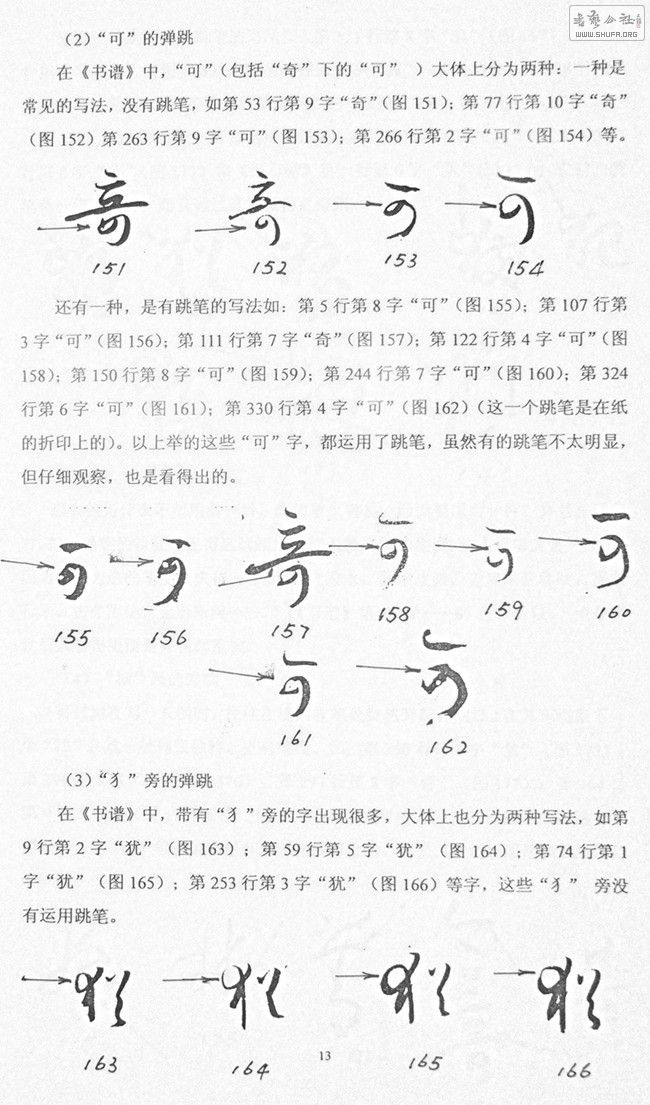 书艺公社
WWW.SHUFA.ORG
（2）“可”的弹跳
在《书谱》中，“可”（包括“奇”下的“可” ）大体上分为两种：一种是
常见的写法，没有跳笔，如第 53 行第 9 字“奇”（图 151）；第 77 行第 10 字“奇”
（图 152）第 263 行第 9 字“可”（图 153）；第 266 行第 2 字“可”（图 154）等。
奇 奇 可 可
151 152 153 154
还有一种，是有跳笔的写法如：第 5 行第 8 字“可”（图 155）；第 107 行第
3 字“可”（图 156）；第 111 行第 7 字“奇”（图 157）；第 122 行第 4 字“可”（图
158）；第 150 行第 8 字“可”（图 159）；第 244 行第 7 字“可”（图 160）；第 324
行第 6 字“可”（图 161）；第 330 行第 4 字“可”（图 162）（这一个跳笔是在纸
的折印上的）。以上举的这些“可”字，都运用了跳笔，虽然有的跳笔不太明显，
但仔细观察，也是看得出的。
可 可 奇 可 可 可
155 156 157 158 159 160
可 可
161 162
（3）“犭”旁的弹跳
在《书谱》中，带有“犭”旁的字出现很多，大体上也分为两种写法，如第
9 行第 2 字“犹”（图 163）；第 59 行第 5 字“犹”（图 164）；第 74 行第 1
字“犹”（图 165）；第 253 行第 3 字“犹”（图 166）等字，这些“犭” 旁没
有运用跳笔。
犹 犹 犹 犹
163 164 165 166
13